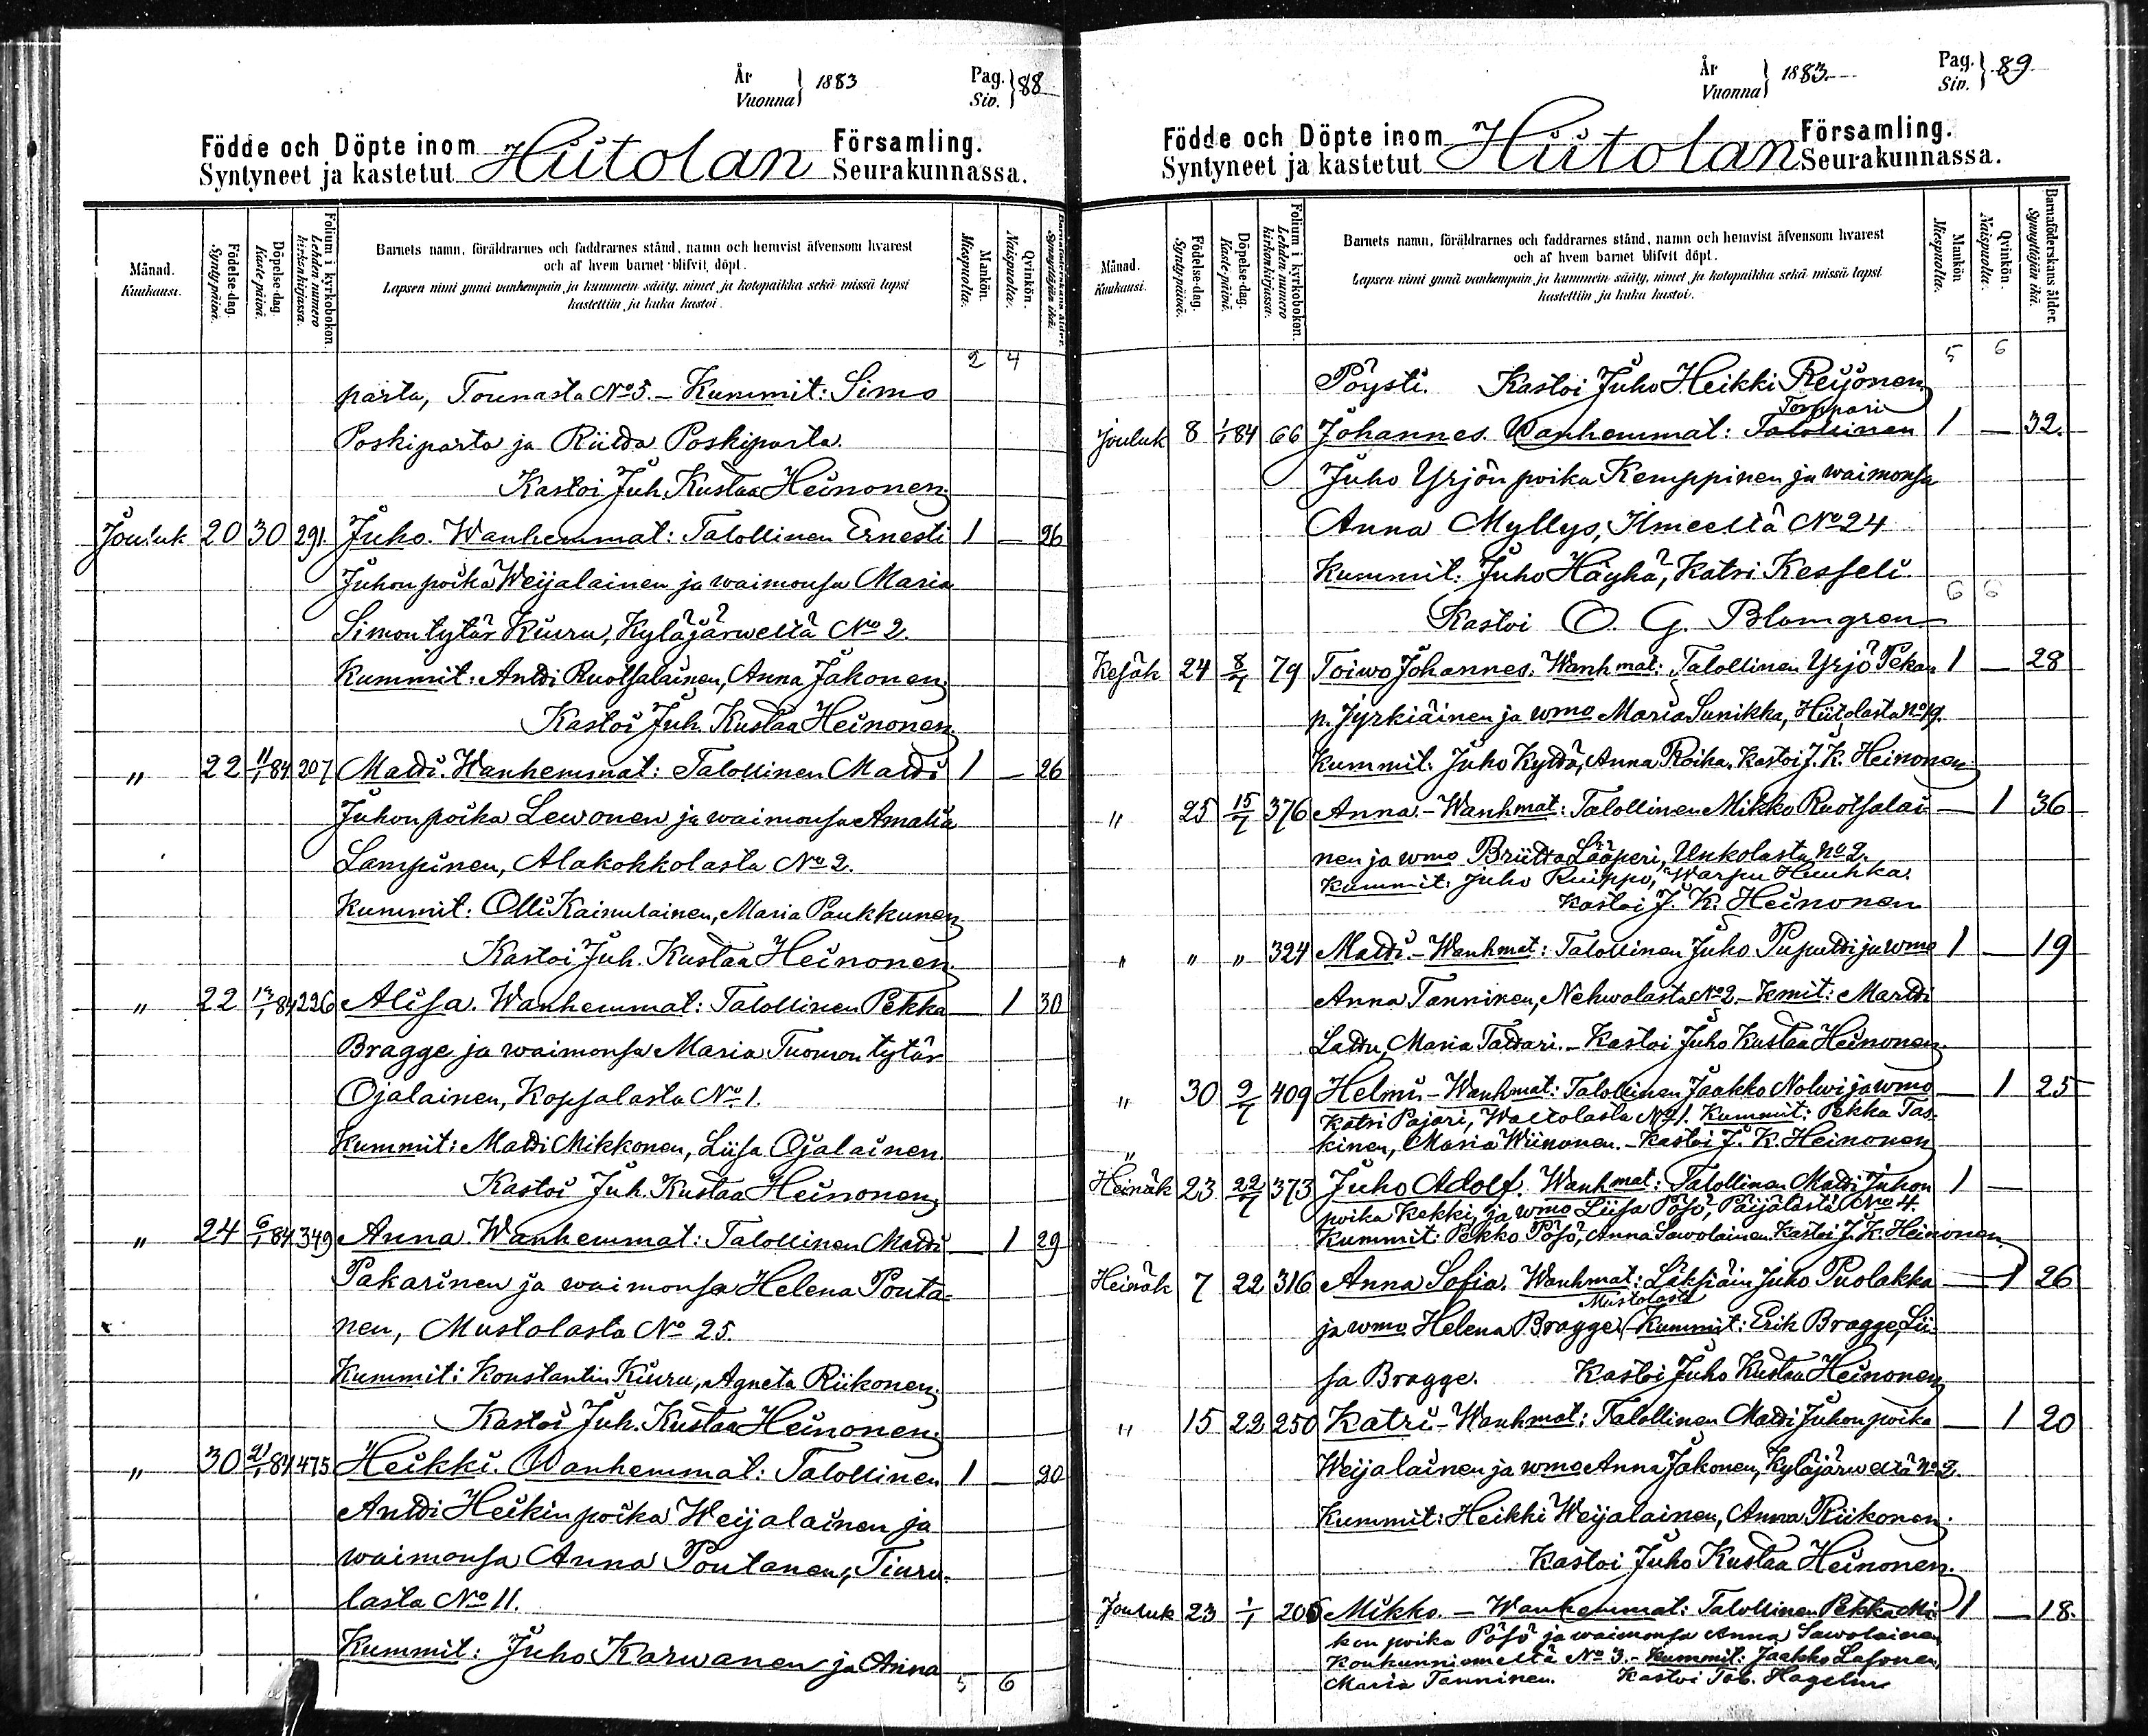 År
Vuonna } 1883
Pag.
Siv. } 88
Födde och Döpte inom Hiitolan Församling.
Syntyneet ja kastetut Seurakunnassa.
Månad.
Kuukausi.
Födelse-dag.
Syntypäivä.
Döpelse-dag.
Kaste-päivä.
Folium i kyrkobokon.
Lehden numero kirkonkirjassa.
Barnets namn, föräldrarnes och faddrarnes stånd, namn och hemvist äfvensom hvarest
och af hvem barnet blifvit döpt.
Lapsen nimi ynnä vanhempain ja kummein sääty, nimet ja kotopaikka sekä missä lapsi
kastettiin ja kuka kastoi.
Mankön.
Miespuolta.
Qvinkön.
Naispuolta.
Barnaföderskans ålder.
Synnyttäjän ikä.
2 4
parta, Tounasta No 5. – Kummit: Simo
Poskiparta ja Riitta Poskiparta.
Kastoi Juh. Kustaa Heinonen.
Jouluk 20 30 291. Juho. Wanhemmat: Talollinen Ernesti 1 — 26
Juhon poika Weijalainen ja waimonsa Maria
Simontytär Kiuru, Kyläjärweltä No 2.
Kummit: Antti Ruotsalainen, Anna Jakonen.
Kastoi Juh. Kustaa Heinonen.
" 22 11/1 84 207 Matti. Wanhemmat: Talollinen Matti 1 — 26
Juhon poika Lewonen ja waimonsa Amalia
Lampinen, Alakohkolasta No 2.
Kummit: Olli Kainulainen, Maria Paukkunen
Kastoi Juh. Kustaa Heinonen.
" 22 13/1 84 226 Alisa. Wanhemmat: Talollinen Pekka — 1 30
Bragge ja waimonsa Maria Tuomon tytär
Ojalainen, Kopsalasta No 1.
Kummit: Matti Mikkonen, Liisa Ojalainen.
Kastoi Juh. Kustaa Heinonen.
" 24 6/1 84 349 Anna. Wanhemmat: Talollinen Matti — 1 29
Pakarinen ja waimonsa Helena Pouta-
nen, Mustolasta No 25.
Kummit: Konstantin Kiuru, Agneta Riikonen.
Kastoi Juh. Kustaa Heinonen.
" 30 21/1 84 475 Heikki. Wanhemmat: Talollinen 1 — 20
Antti Heikin poika Weijalainen ja
waimonsa Anna Poutanen, Tiuru-
lasta No 11.
Kummit: Juho Karwanen ja Anna
5 6
År
Vuonna } 1883
Pag.
Siv. } 89
Födde och Döpte inom Hiitolan Församling.
Syntyneet ja kastetut Seurakunnassa.
Månad.
Kuukausi.
Födelse-dag.
Syntypäivä.
Döpelse-dag.
Kaste-päivä.
Folium i kyrkobokon.
Lehden numero kirkonkirjassa.
Barnets namn, föräldrarnes och faddrarnes stånd, namn och hemvist äfvensom hvarest
och af hvem barnet blifvit döpt.
Lapsen nimi ynnä vanhempain ja kummein sääty, nimet ja kotopaikka sekä missä lapsi
kastettiin ja kuka kastoi.
Mankön
Miespuolta.
Qvinkön.
Naispuolta.
Barnaföderskans ålder.
Synnyttäjän ikä.
5 6
Pöysti. Kastoi Juho Heikki Reijonen
Torppari
Jouluk 8 1/1 84 66 Johannes. Wanhemmat: Talollinen 1 — 32.
Juho Yrjön poika Kemppinen ja waimonsa
Anna Myllys, Ilmeeltä No 24
Kummit: Juho Häyhä, Katri Kesseli.
6 6
Kastoi O. G. Blomgren
Kesäk 24 8/7 79 Toiwo Johannes. Wanhmat: Talollinen Yrjö Pekan 1 — 28
p. Jyrkiäinen ja wmo Maria Sunikka, Hiitolasta No 19.
Kummit: Juho Kyttä, Anna Roiha. Kastoi J. K. Heinonen
" 25 15/7 376 Anna. – Wanhmat: Talollinen Mikko Ruotsalai- — 1 36
nen ja wmo Briitta Lääperi, Unkolasta No 2.
Kummit: Juho Ruippo, Warpu Huuhka.
Kastoi J. K. Heinonen
" " " 324 Matti. – Wanhmat: Talollinen Juho Puputti ja wmo 1 — 19
Anna Tanninen, Nehwolasta No 2. – Kmit: Martti
Lattu, Maria Tattari. – Kastoi Juho Kustaa Heinonen.
" 30 9/7 409 Helmi – Wanhmat: Talollinen Jaakko Nolwi ja wmo — 1 25
Katri Pajari, Waltolasta No 1. Kummit: Pekka Tas-
kinen, Maria Wiinonen. – Kastoi J. K. Heinonen
"
Heinäk 23 22/7 373 Juho Adolf. Wanhmat: Talollinen Matti Juhon 1 —
poika Kekki, ja wmo Liisa Pösö, Päijälästä No 4.
Kummit: Pekko Pösö, Anna Sawolainen Kastoi J. K. Heinonen.
Heinäk 7 22 316 Anna Sofia. Wanhmat: Läksiäin Juho Puolakka — 1 26
Mustolasta
ja wmo Helena Bragge. Kummit: Erik Bragge, Lii-
sa Bragge. Kastoi Juho Kustaa Heinonen
" 15 22 250 Katri – Wanhmat: Talollinen Matti Juhon poika — 1 20
Weijalainen ja wmo Anna Jakonen, Kyläjärweltä No 2.
Kummit: Heikki Weijalainen, Anna Riikonen.
Kastoi Juho Kustaa Heinonen.
Jouluk 23 1/1 205 Mikko. – Wanhemmat: Talollinen Pekka Mi- 1 — 18.
kon poika Pösö ja waimonsa Anna Sawolainen
Koukunniemeltä No 3. – Kummit: Jaakko Lasonen,
Maria Tanninen. Kastoi Tob. Hagelin